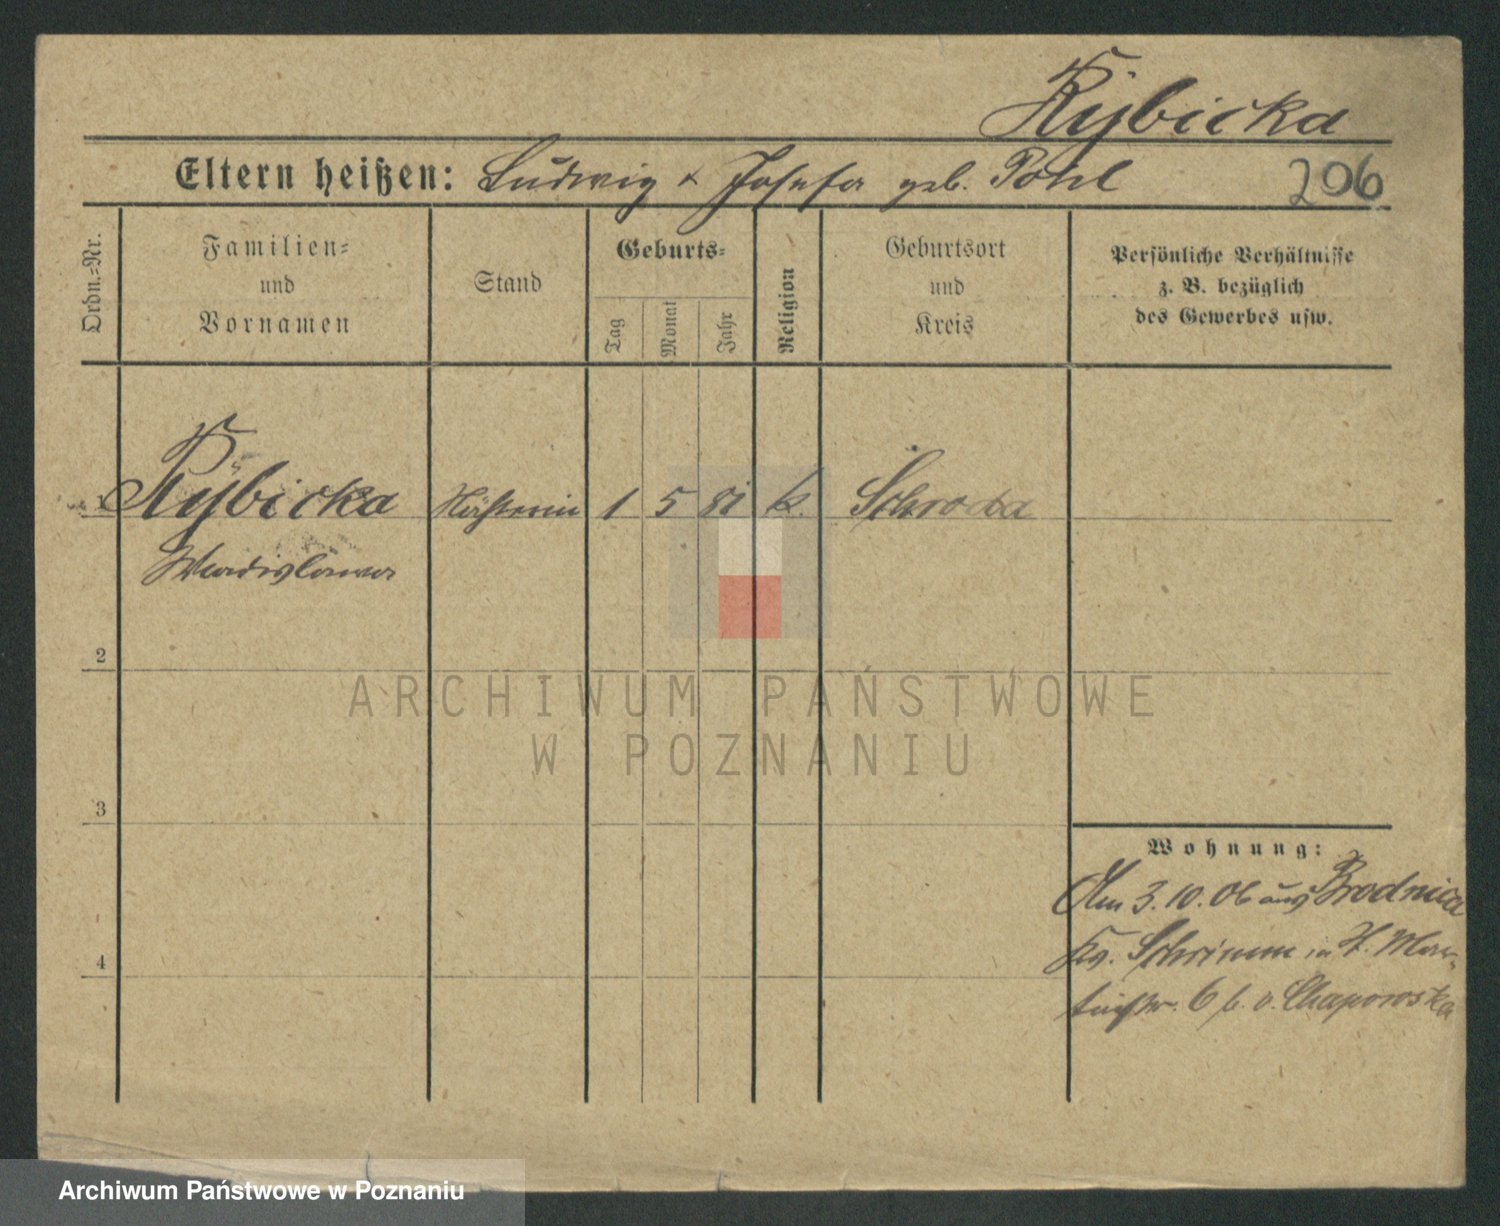 Rybicka
Eltern heißen: Ludwig & Josefa geb. Pohl 206
Ordn.=Nr.
Familien=
und
Vornamen
Stand
Geburts=
Tag
Monat
Jahr
Religion
Geburtsort
und
Kreis
Persönliche Verhältnisse
z. B. bezüglich
des Gewerbes usw.
1 Rybicka 1 5 81 k. Schroda
Wladislawa
2
ARCHIWUM PAŃSTWOWE
W POZNANIU
3
Wohnung:
Am 3.10.06 aus Brodnica
Kr. Schrimm in St. Mar-
tinstr. 6 b. v. Chaporoska
4
Archiwum Państwowe w Poznaniu